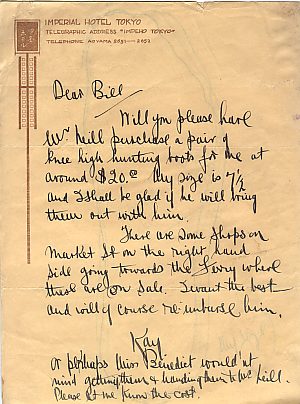 IMPERIAL HOTEL TOKYO
TELEGRAPHIC ADDRESS "IMPEHO TOKYO"
TELEPHONE AOYAMA 2651—2652
Dear Bill
Will you please have
Mr Neill purchase a pair of
knee high hunting boots for me at
around $20.00 My size is 7½
and I shall be glad if he will bring
them out with him.
There are some shops on
Market St on the right hand
side going towards the Ferry where
these are on sale. I want the best
and will of course re-imburse him.
Kay
Or perhaps Miss Benedict would'nt
mind getting them & handing them to Mc Neill.
Please let me know the cost.